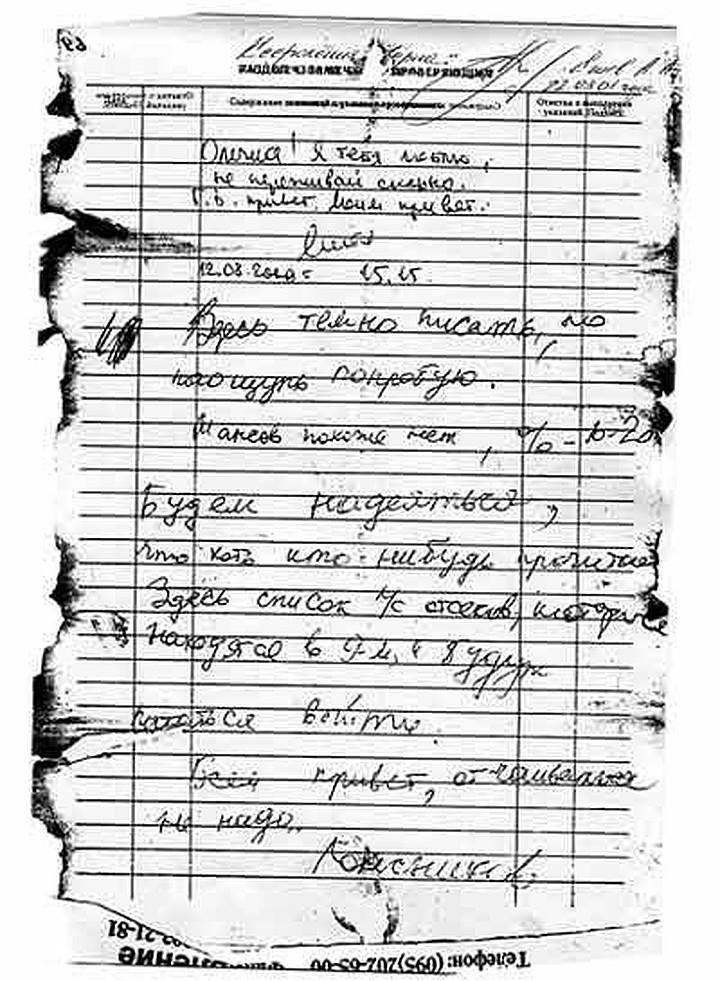 69
22.03.01
Олечка! Я тебя люблю,
не переживай сильно.
Г.В. привет. Моим привет.
12.08.2000г 15.15
Здесь темно писать, но
наощупь попробую.
Шансов похоже нет, % - 10-20
Будем надеяться,
что хоть кто-нибудь прочитает
Здесь список л/с отсеков, которые
находятся в 9-м, и будут
пытаться выйти.
Всем привет, отчаиваться
не надо.
Колесников
Телефон: (095)202-65-00